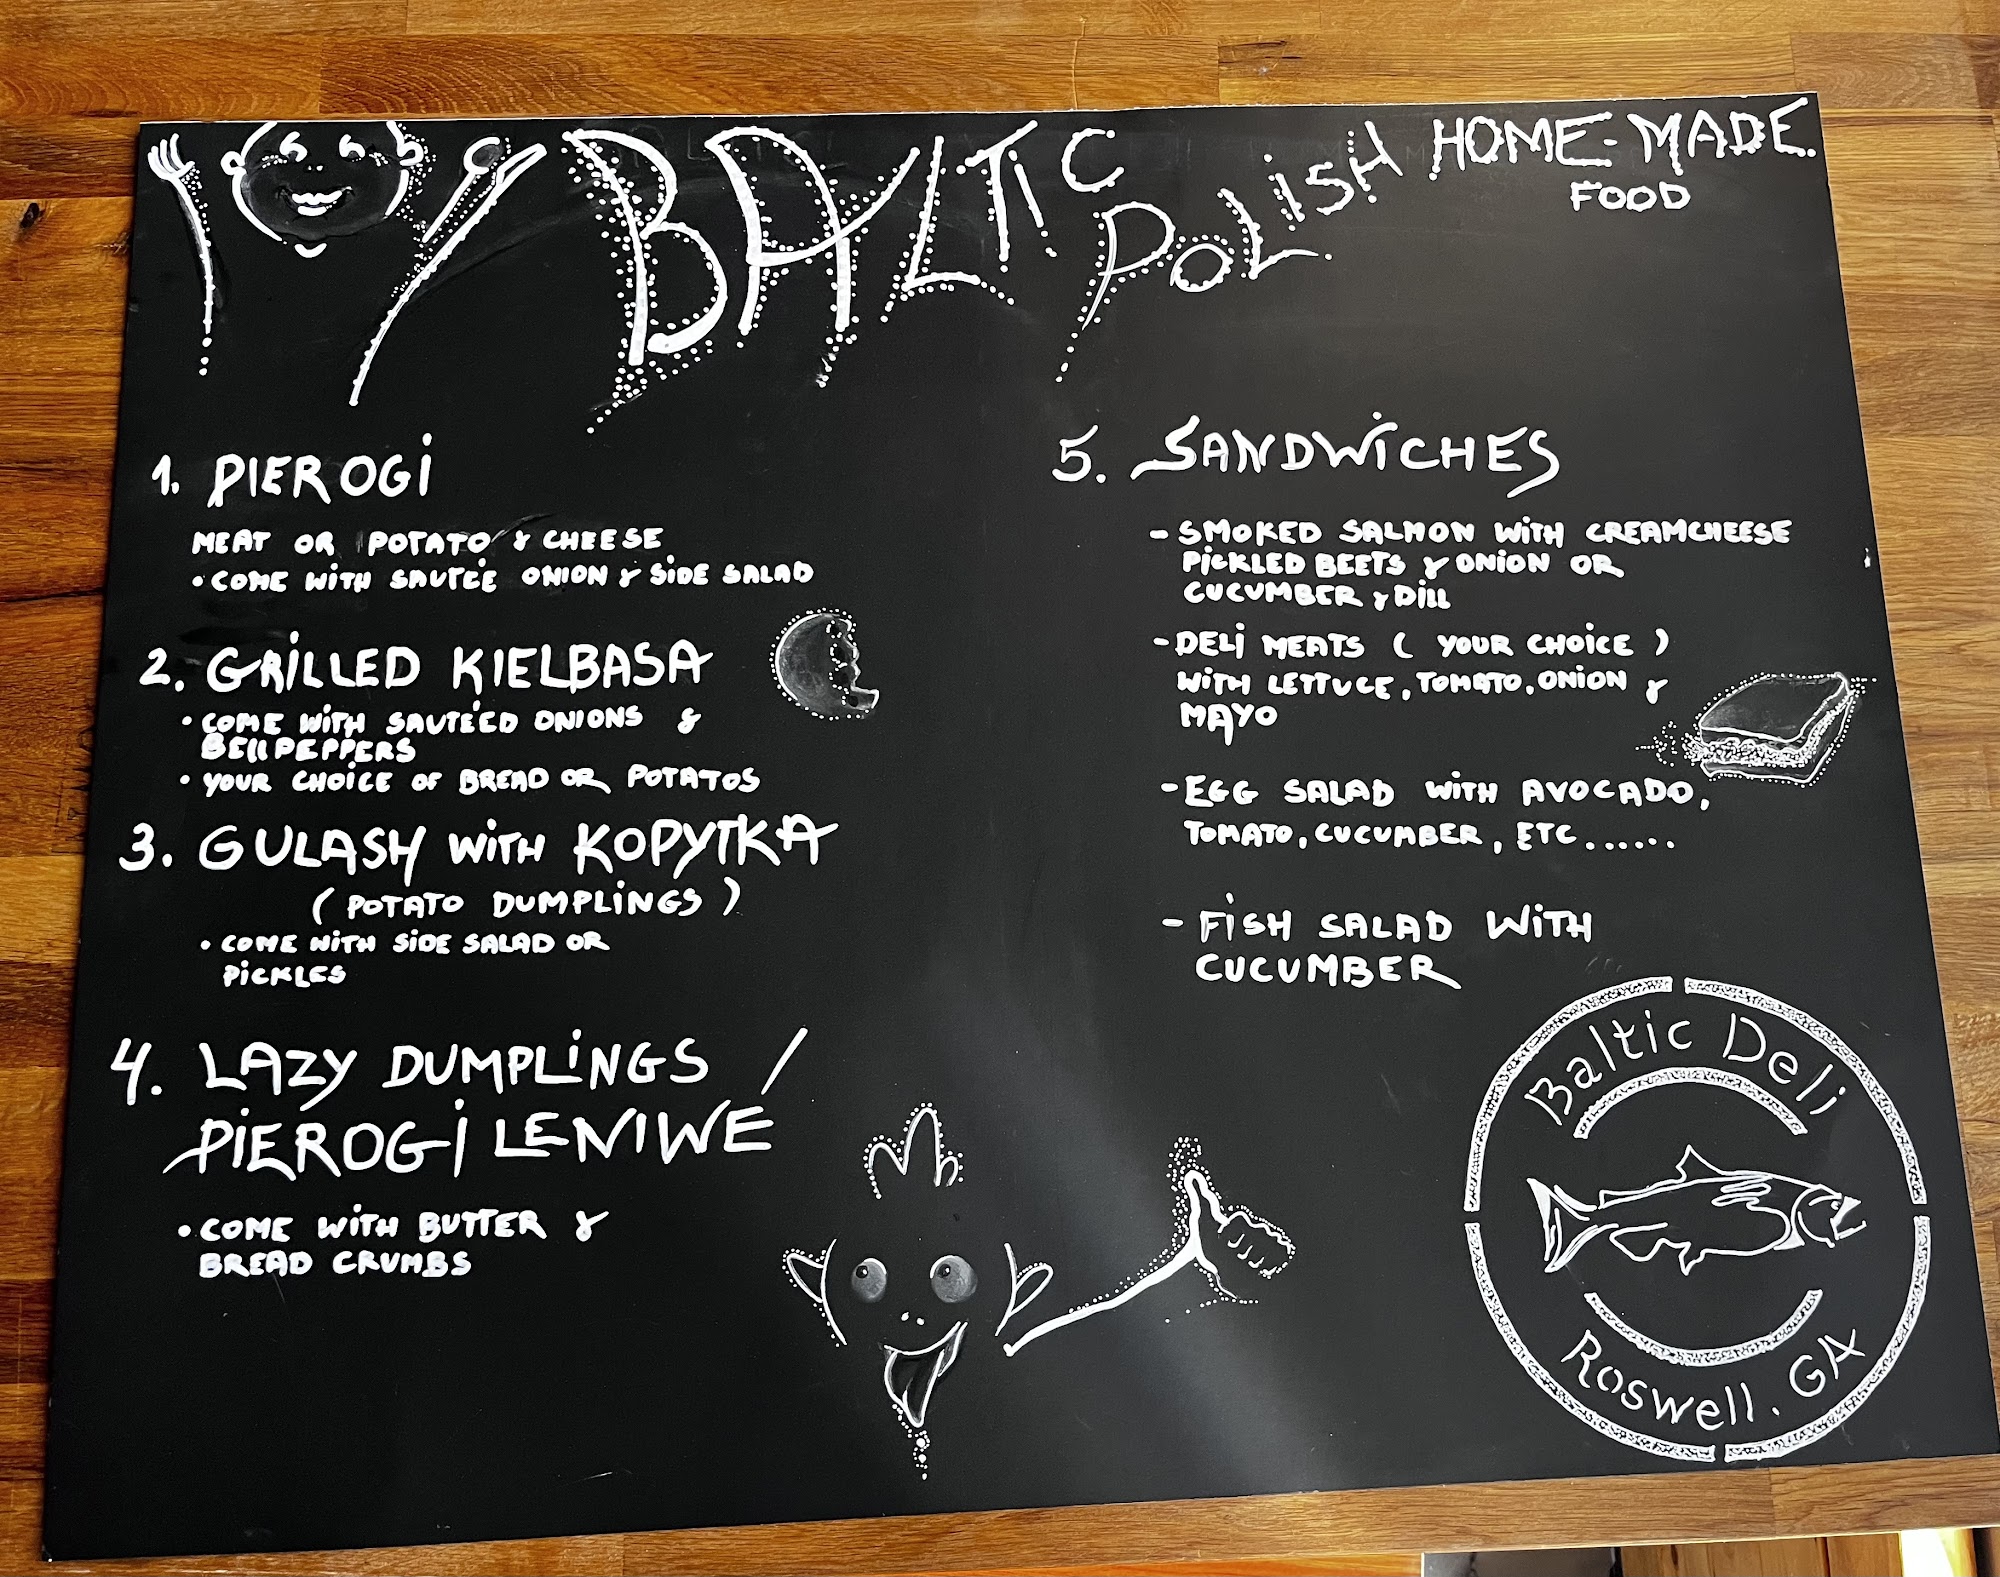 BALTIC
POLISH
HOME-MADE.
FOOD
1. PIEROGI
MEAT OR POTATO & CHEESE
• COME WITH SAUTÉE ONION & SIDE SALAD
2. GRILLED KIELBASA
• COME WITH SAUTÉED ONIONS &
BELLPEPPERS
• YOUR CHOICE OF BREAD OR POTATOS
3. GULASH WITH KOPYTKA
( POTATO DUMPLINGS )
• COME WITH SIDE SALAD OR
PICKLES
4. LAZY DUMPLINGS /
PIEROGI LENIWE
• COME WITH BUTTER &
BREAD CRUMBS
5. SANDWICHES
- SMOKED SALMON WITH CREAMCHEESE
PICKLED BEETS & ONION OR
CUCUMBER & DILL
- DELI MEATS ( YOUR CHOICE )
WITH LETTUCE, TOMATO, ONION &
MAYO
- EGG SALAD WITH AVOCADO,
TOMATO, CUCUMBER, ETC......
- FISH SALAD WITH
CUCUMBER
Baltic Deli
Roswell. GA